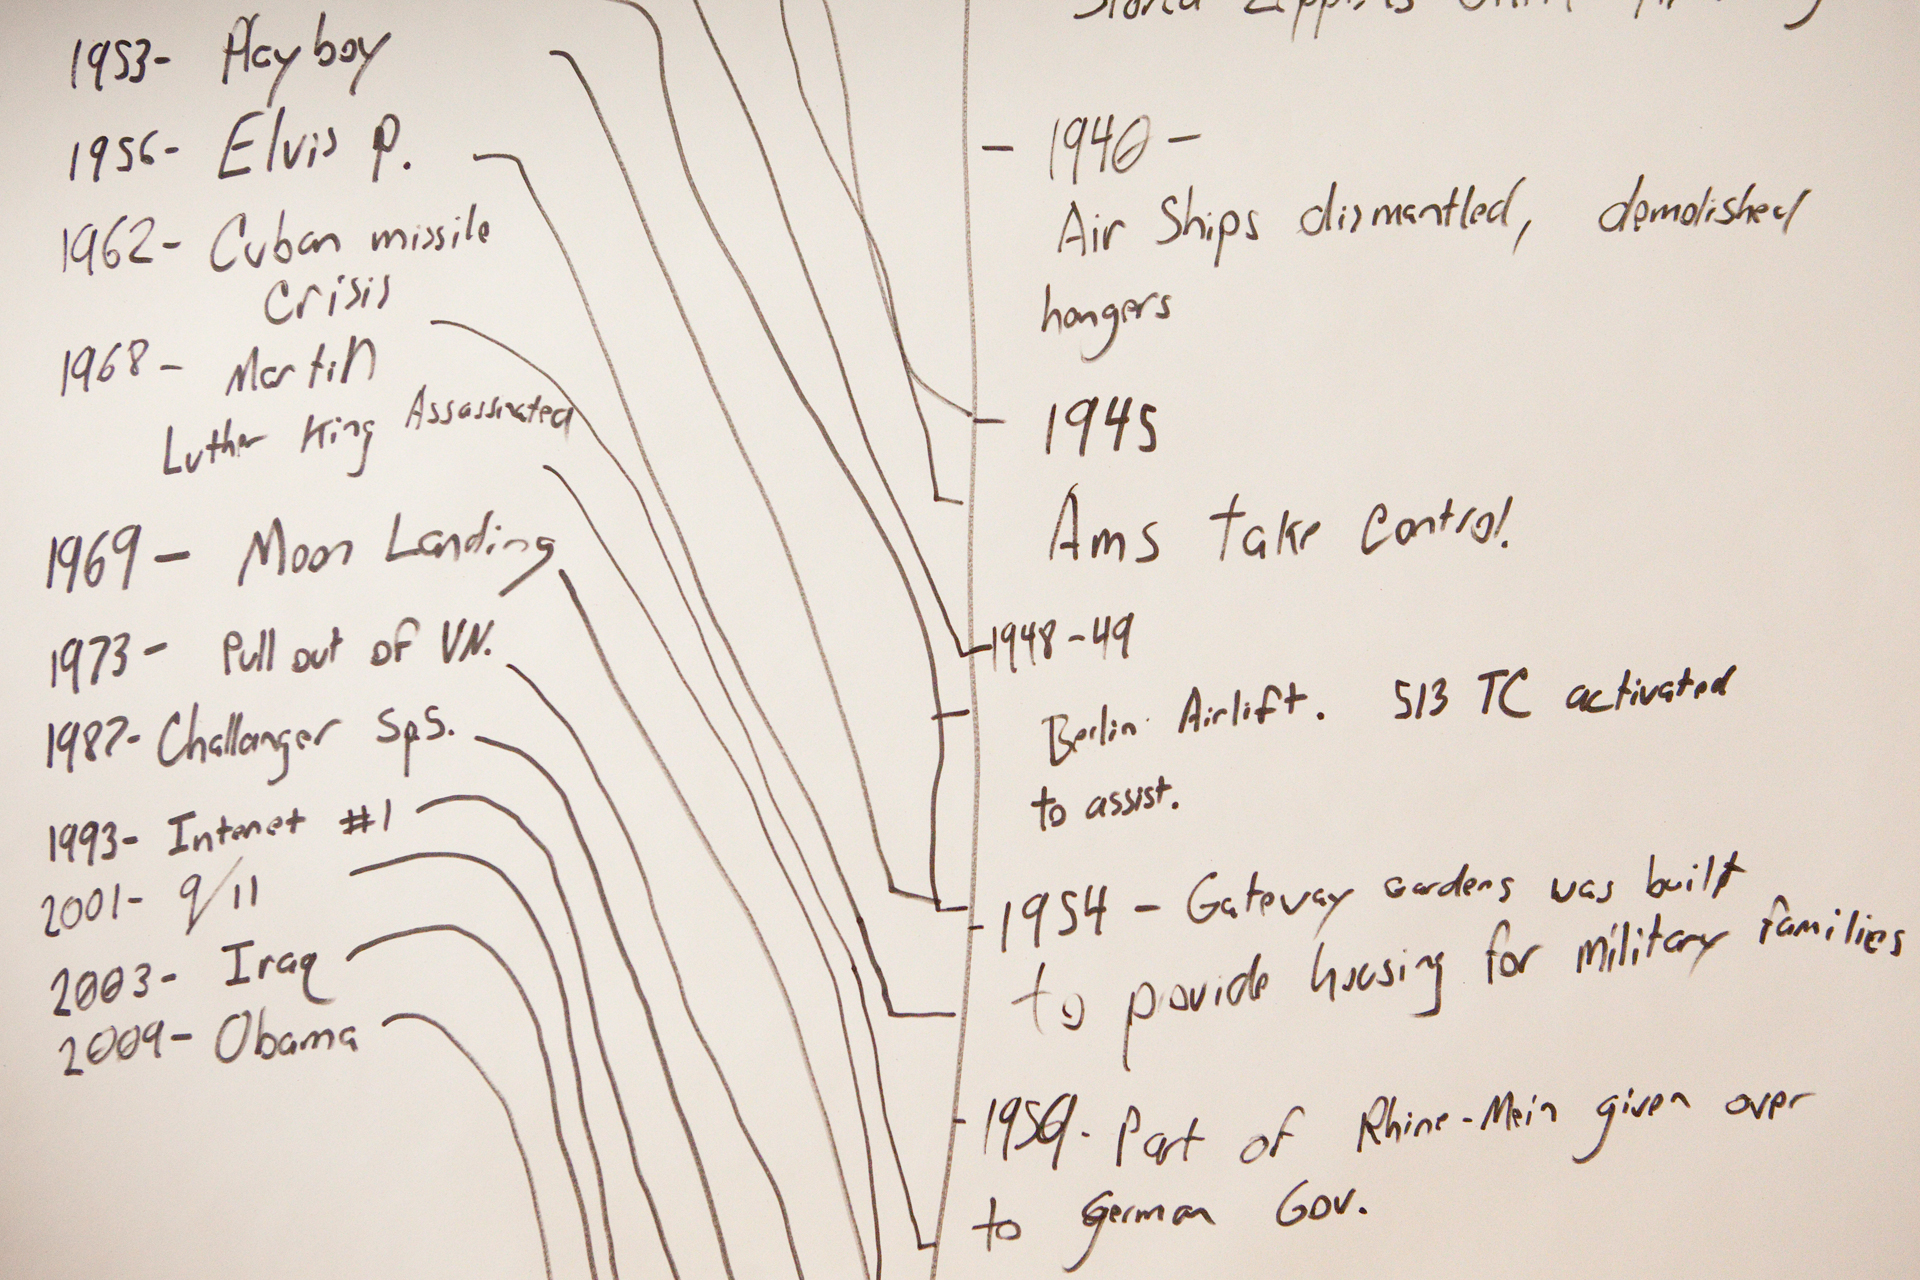 1953- Playboy
1956- Elvis P.
1962- Cuban missile
Crisis
1968- Martin
Luther King Assassinated
1969- Moon Landing
1973- Pull out of VN.
1987- Challanger SpS.
1993- Intenet #1
2001- 9/11
2003- Iraq
2009- Obama
- 1940 -
Air Ships dismantled, demolished
hangers
1945
Ams take control.
1948-49
Berlin Airlift. 513 TC activated
to assist.
1954 - Gateway Gardens was built
to provide housing for military families
1959- Part of Rhine-Mein given over
to German Gov.